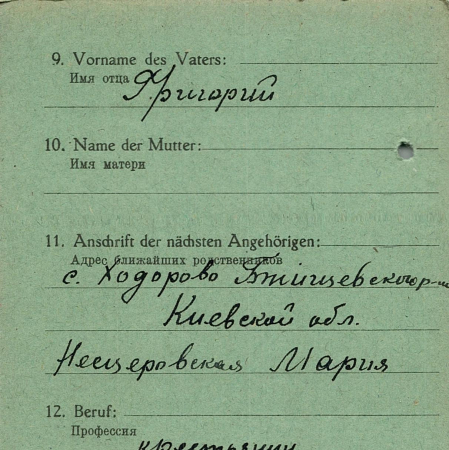 9. Vorname des Vaters:
Имя отца Григорий
10. Name der Mutter:
Имя матери
11. Anschrift der nächsten Angehörigen:
Адрес ближайших родственников
с. Ходорово
Киевской обл.
Нещеровская Мария
12. Beruf:
Профессия
крестьянин